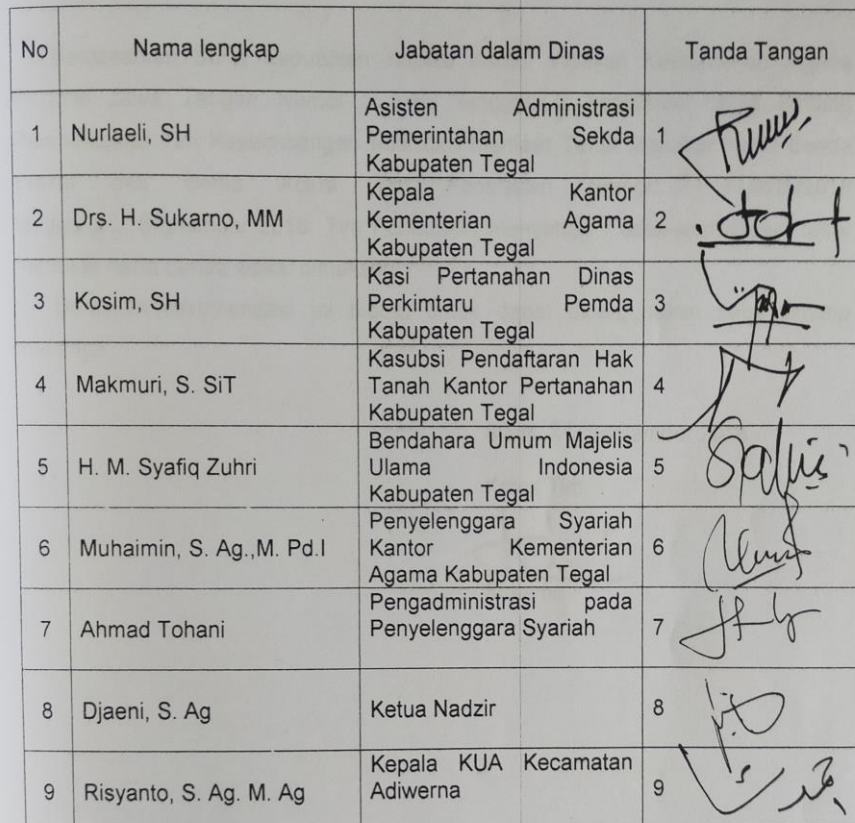 No Nama lengkap Jabatan dalam Dinas Tanda Tangan
1 Nurlaeli, SH Asisten Administrasi Pemerintahan Sekda Kabupaten Tegal 1
2 Drs. H. Sukarno, MM Kepala Kantor Kementerian Agama Kabupaten Tegal 2
3 Kosim, SH Kasi Pertanahan Dinas Perkimtaru Pemda Kabupaten Tegal 3
4 Makmuri, S. SiT Kasubsi Pendaftaran Hak Tanah Kantor Pertanahan Kabupaten Tegal 4
5 H. M. Syafiq Zuhri Bendahara Umum Majelis Ulama Indonesia Kabupaten Tegal 5
6 Muhaimin, S. Ag.,M. Pd.I Penyelenggara Syariah Kantor Kementerian Agama Kabupaten Tegal 6
7 Ahmad Tohani Pengadministrasi pada Penyelenggara Syariah 7
8 Djaeni, S. Ag Ketua Nadzir 8
9 Risyanto, S. Ag. M. Ag Kepala KUA Kecamatan Adiwerna 9